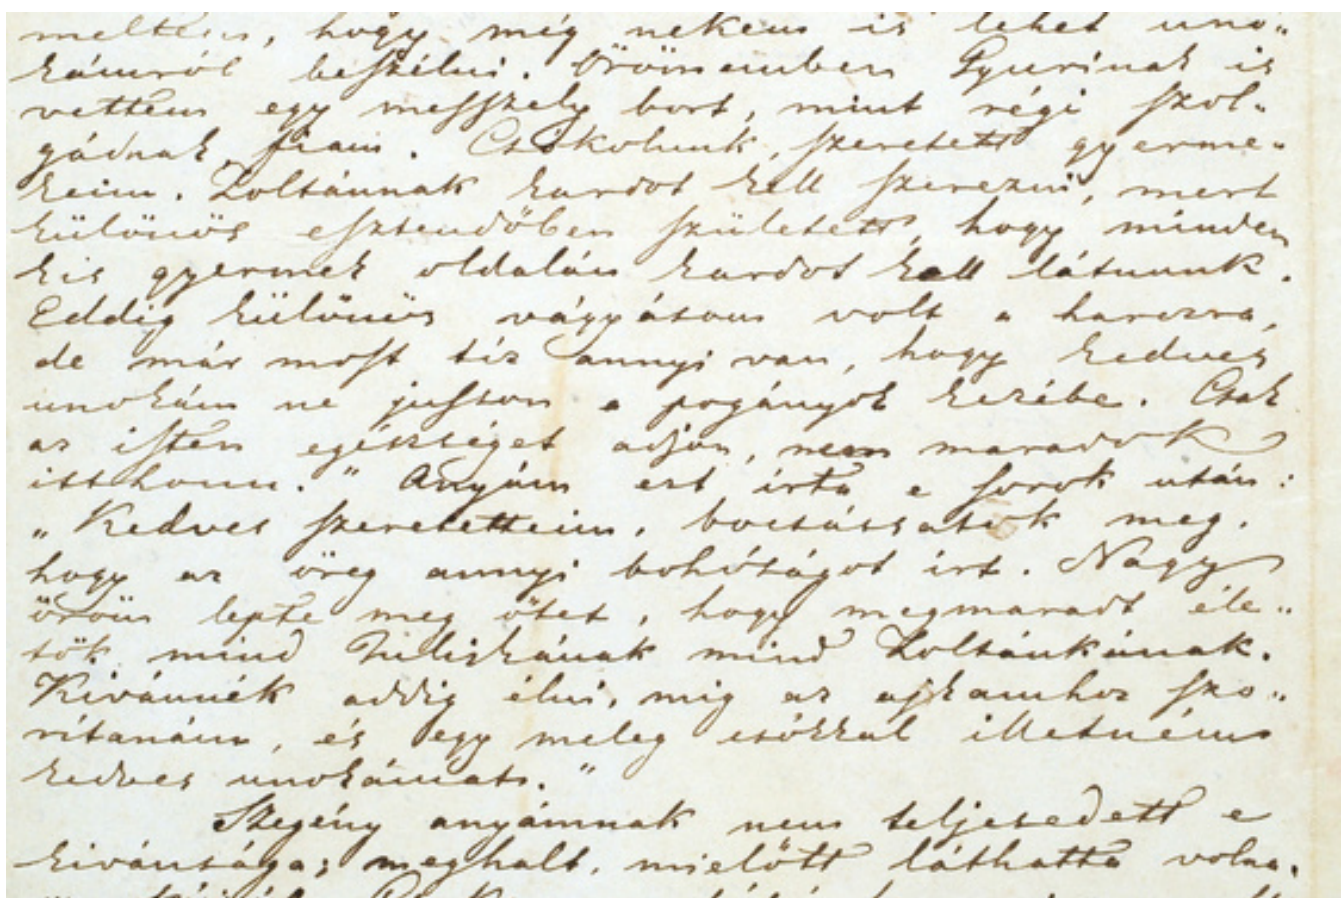 meltem, hogy még nekem is lehet uno-
kámról beszélni. Örömemben Gyurinak is
vettem egy messzely bort, mint régi szol-
gádnak, fiam. Csókolunk, szeretett gyerme-
keim. Zoltánnak kardot kell szerezni, mert
különös esztendőben született, hogy minden
kis gyermek oldalán kardot kell látnunk.
Eddig különös vágyásom volt a harczra,
de már most tíz annyi van, hogy kedves
unokám ne jusson a pogányok kezébe. Csak
az isten egészséget adjon, nem maradok
itthonn." Anyám ezt írta e sorok után:
„Kedves szeretetteim, bocsássatok meg,
hogy az öreg annyi bohóságot írt. Nagy
öröm lepte meg őtet, hogy megmaradt éle-
tök mind Juliskának mind Zoltánkának.
Kivánnék addig élni, mig az ajkamhoz szo-
rítanám, és egy meleg csókkal illetném
kedves unokámat."
Szegény anyámnak nem teljesedett e
kivánsága; meghalt, mielőtt láthatta volna